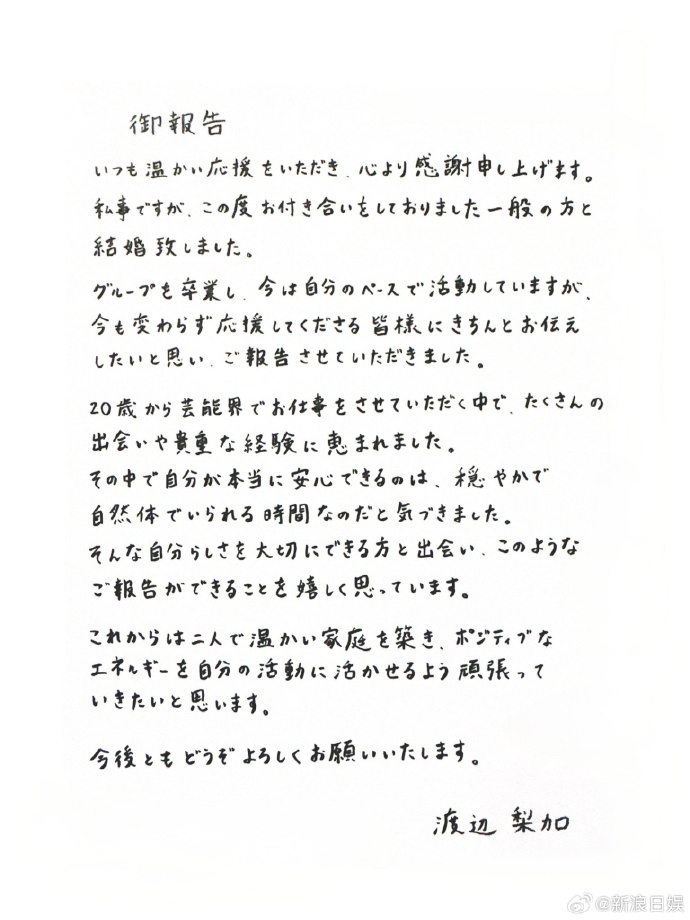 御報告
いつも温かい応援をいただき、心より感謝申し上げます。
私事ですが、この度お付き合いをしておりました一般の方と
結婚致しました。
グループを卒業し、今は自分のペースで活動していますが、
今も変わらず応援してくださる皆様にきちんとお伝え
したいと思い、ご報告させていただきました。
20歳から芸能界でお仕事をさせていただく中で、たくさんの
出会いや貴重な経験に恵まれました。
その中で自分が本当に安心できるのは、穏やかで
自然体でいられる時間なのだと気づきました。
そんな自分らしさを大切にできる方と出会い、このような
ご報告ができることを嬉しく思っています。
これからは二人で温かい家庭を築き、ポジティブな
エネルギーを自分の活動に活かせるよう頑張って
いきたいと思います。
今後ともどうぞよろしくお願いいたします。
渡辺 梨加
@新浪日娱